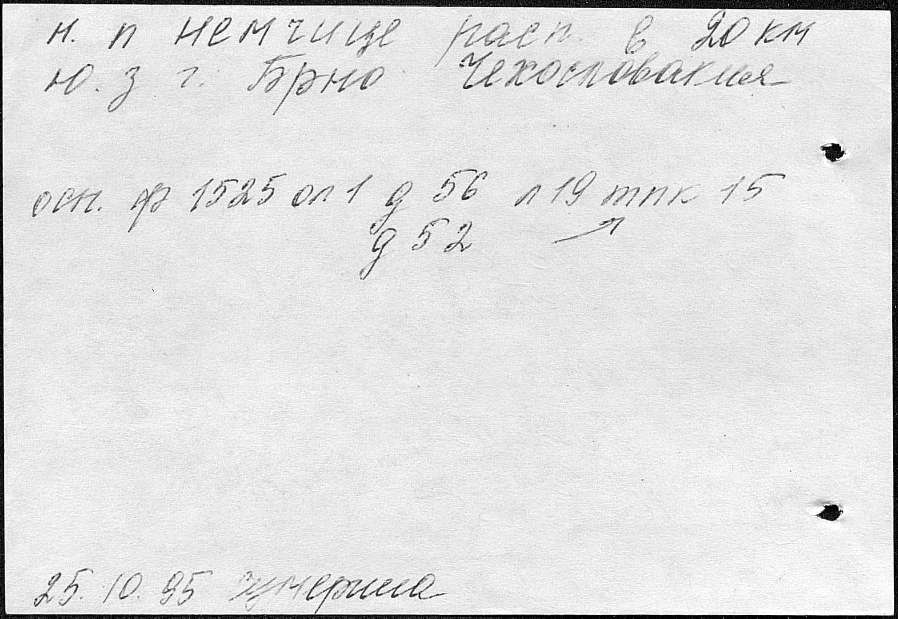 н. п Немчице расп. в 20 км
ю. з г. Брно Чехословакия
осн. ф 1525 оп 1 д 56 л 19 тпк 15
д 52
25. 10. 95